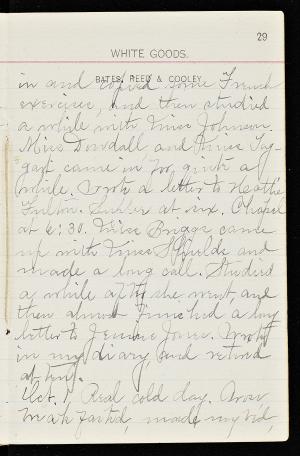 29
WHITE GOODS.
BATES, REED & COOLEY.
in and copied some French
exercises, and then studied
a while with Miss Johnson.
Miss Dowdall and Miss Tag-
gart came in for quite a
while. Wrote a letter to
Fulton. Supper at six. Chapel
at 6:30. Miss Briggs came
up with Miss Sheffields and
made a long call. Studied
a while after she went, and
then almost finished a long
letter to Jennie Jones. Wrote
in my diary, and retired
at ten.
Oct. 1. Real cold day. Arose
breakfasted, made my bed,